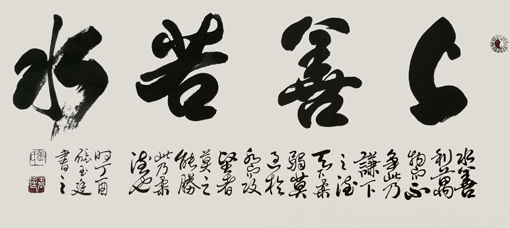 上善若水
水善
利萬
物而不
争此乃
謙下
之德
天下柔
弱莫
過於
水而攻
堅者
莫之
能勝
此乃柔
德也
時丁酉
玉庭
書之